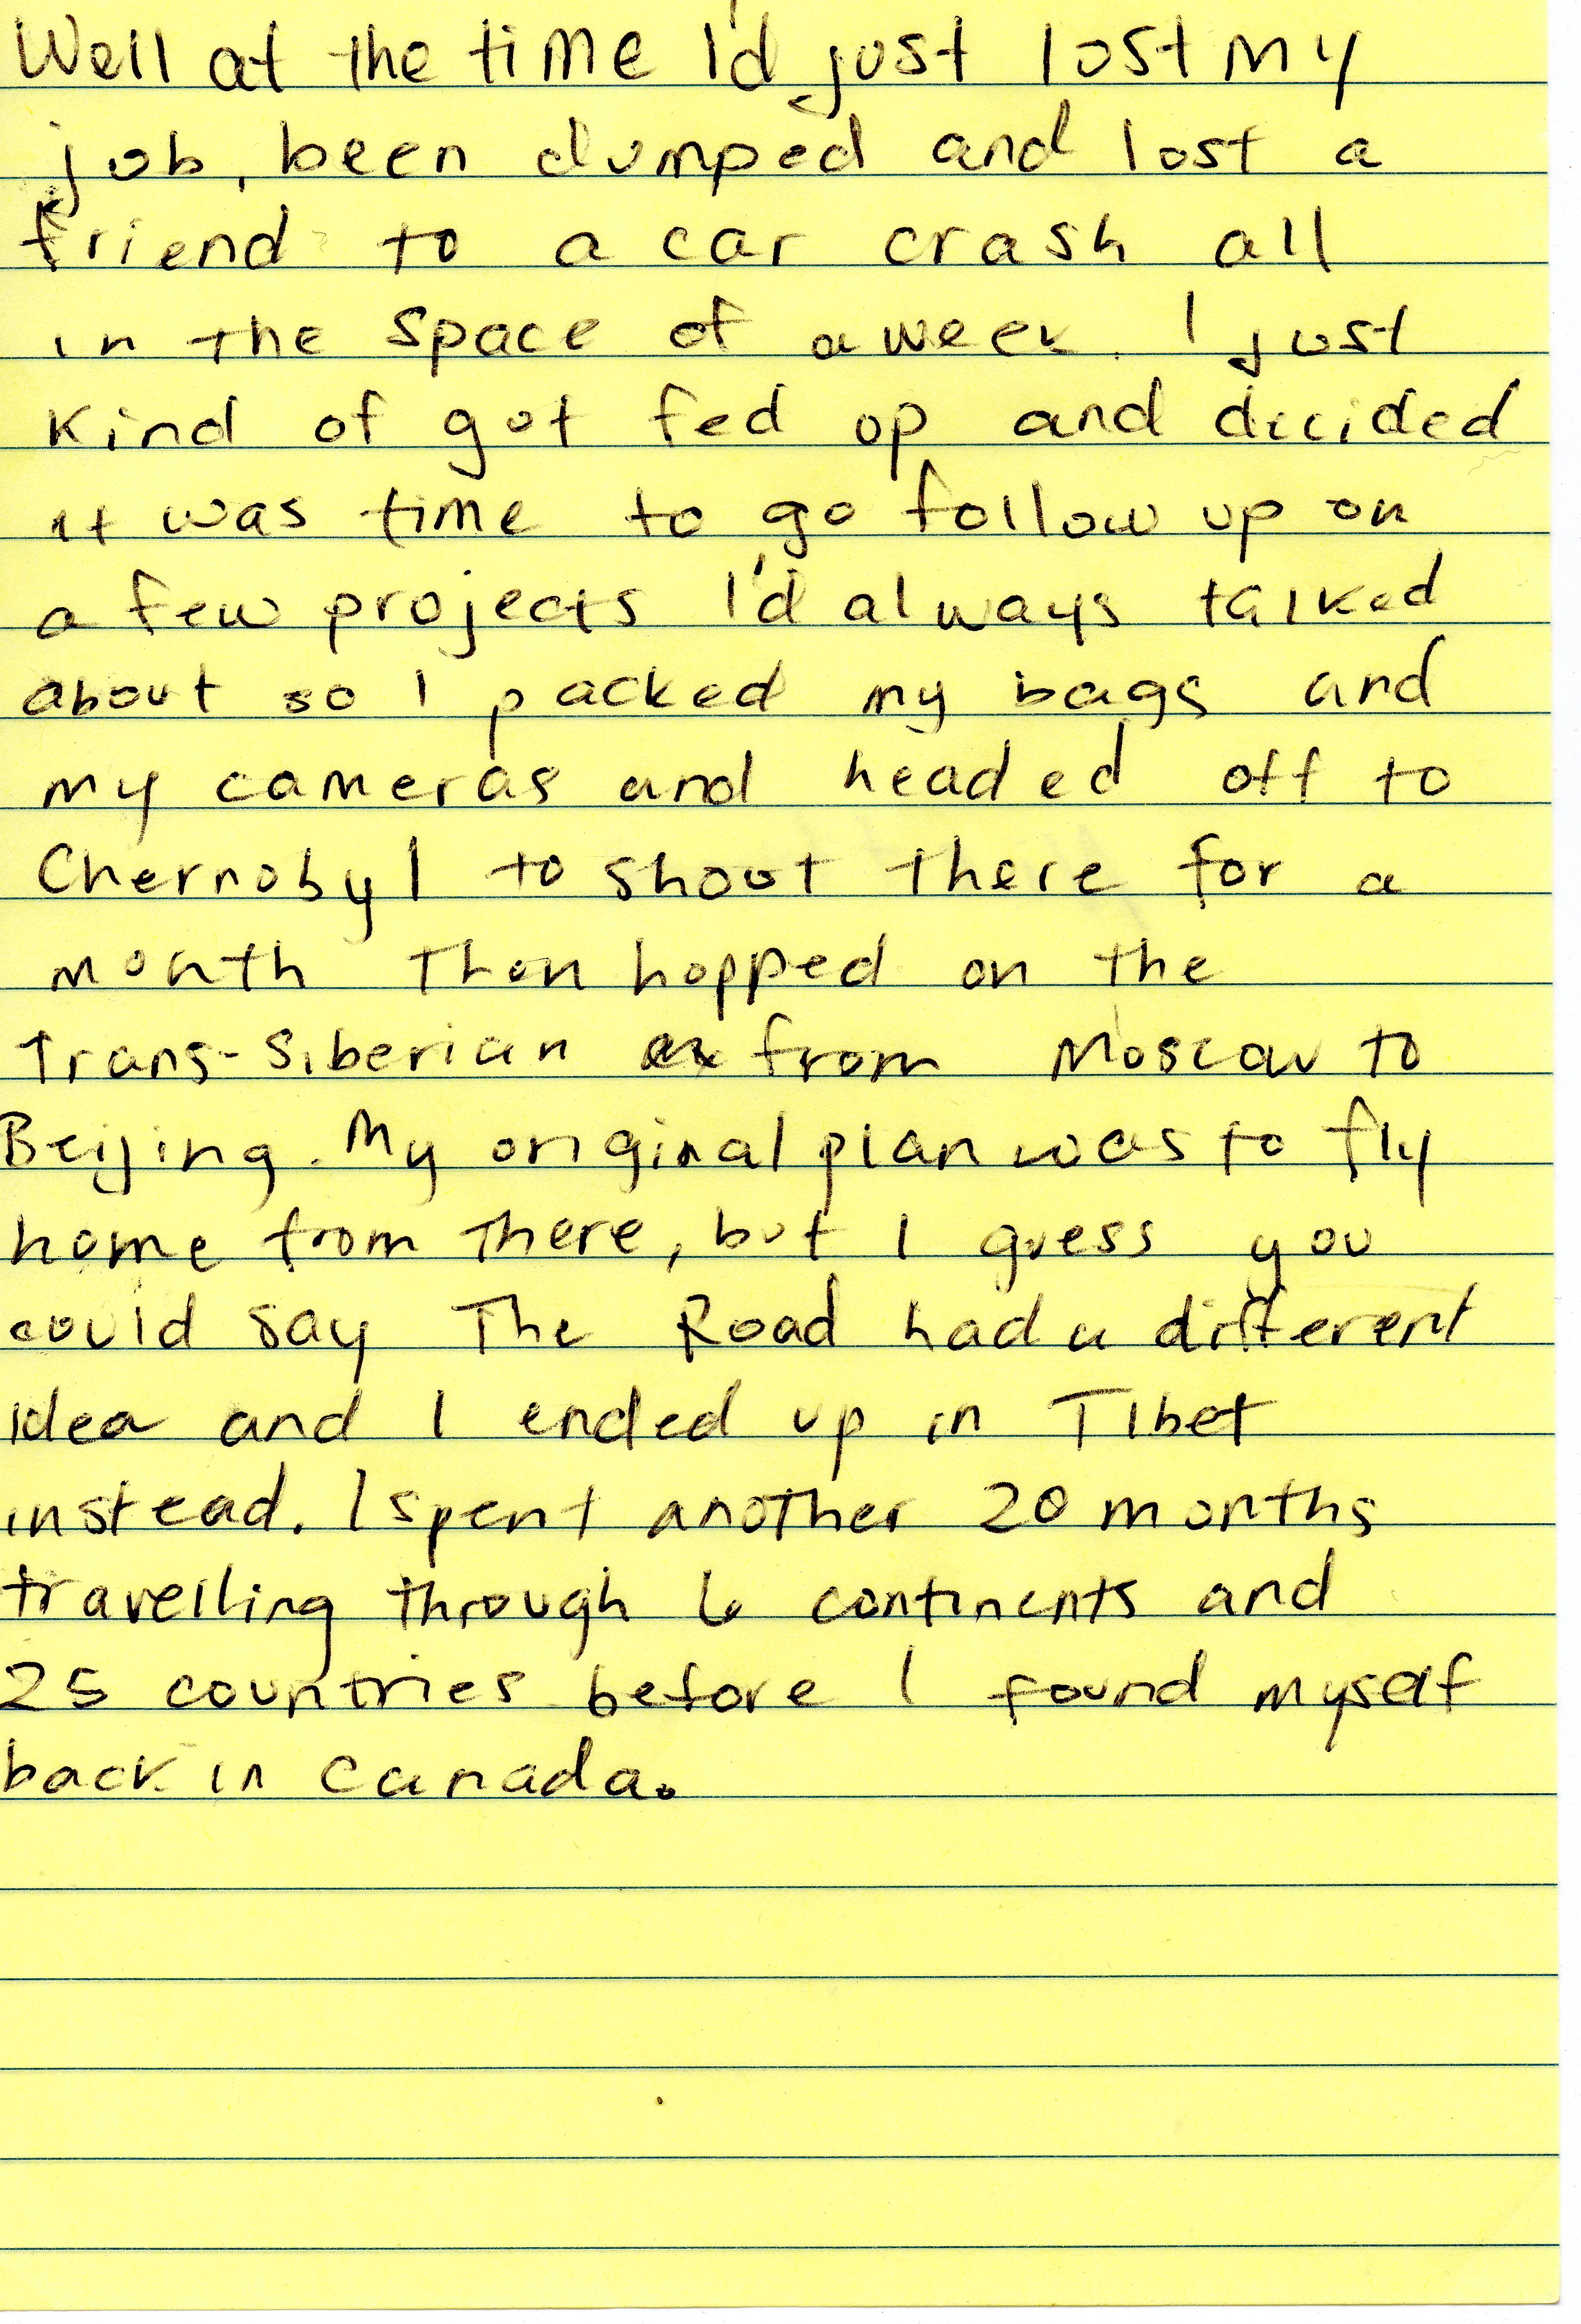 Well at the time I'd just lost my
job, been dumped and lost a
friend to a car crash all
in the space of a week. I just
kind of got fed up and decided
it was time to go follow up on
a few projects I'd always talked
about so I packed my bags and
my cameras and headed off to
Chernobyl to shoot there for a
month then hopped on the
Trans-Siberian from Moscow to
Beijing. My original plan was to fly
home from there, but I guess you
could say The Road had a different
idea and I ended up in Tibet
instead. I spent another 20 months
travelling through 6 continents and
25 countries before I found myself
back in Canada.